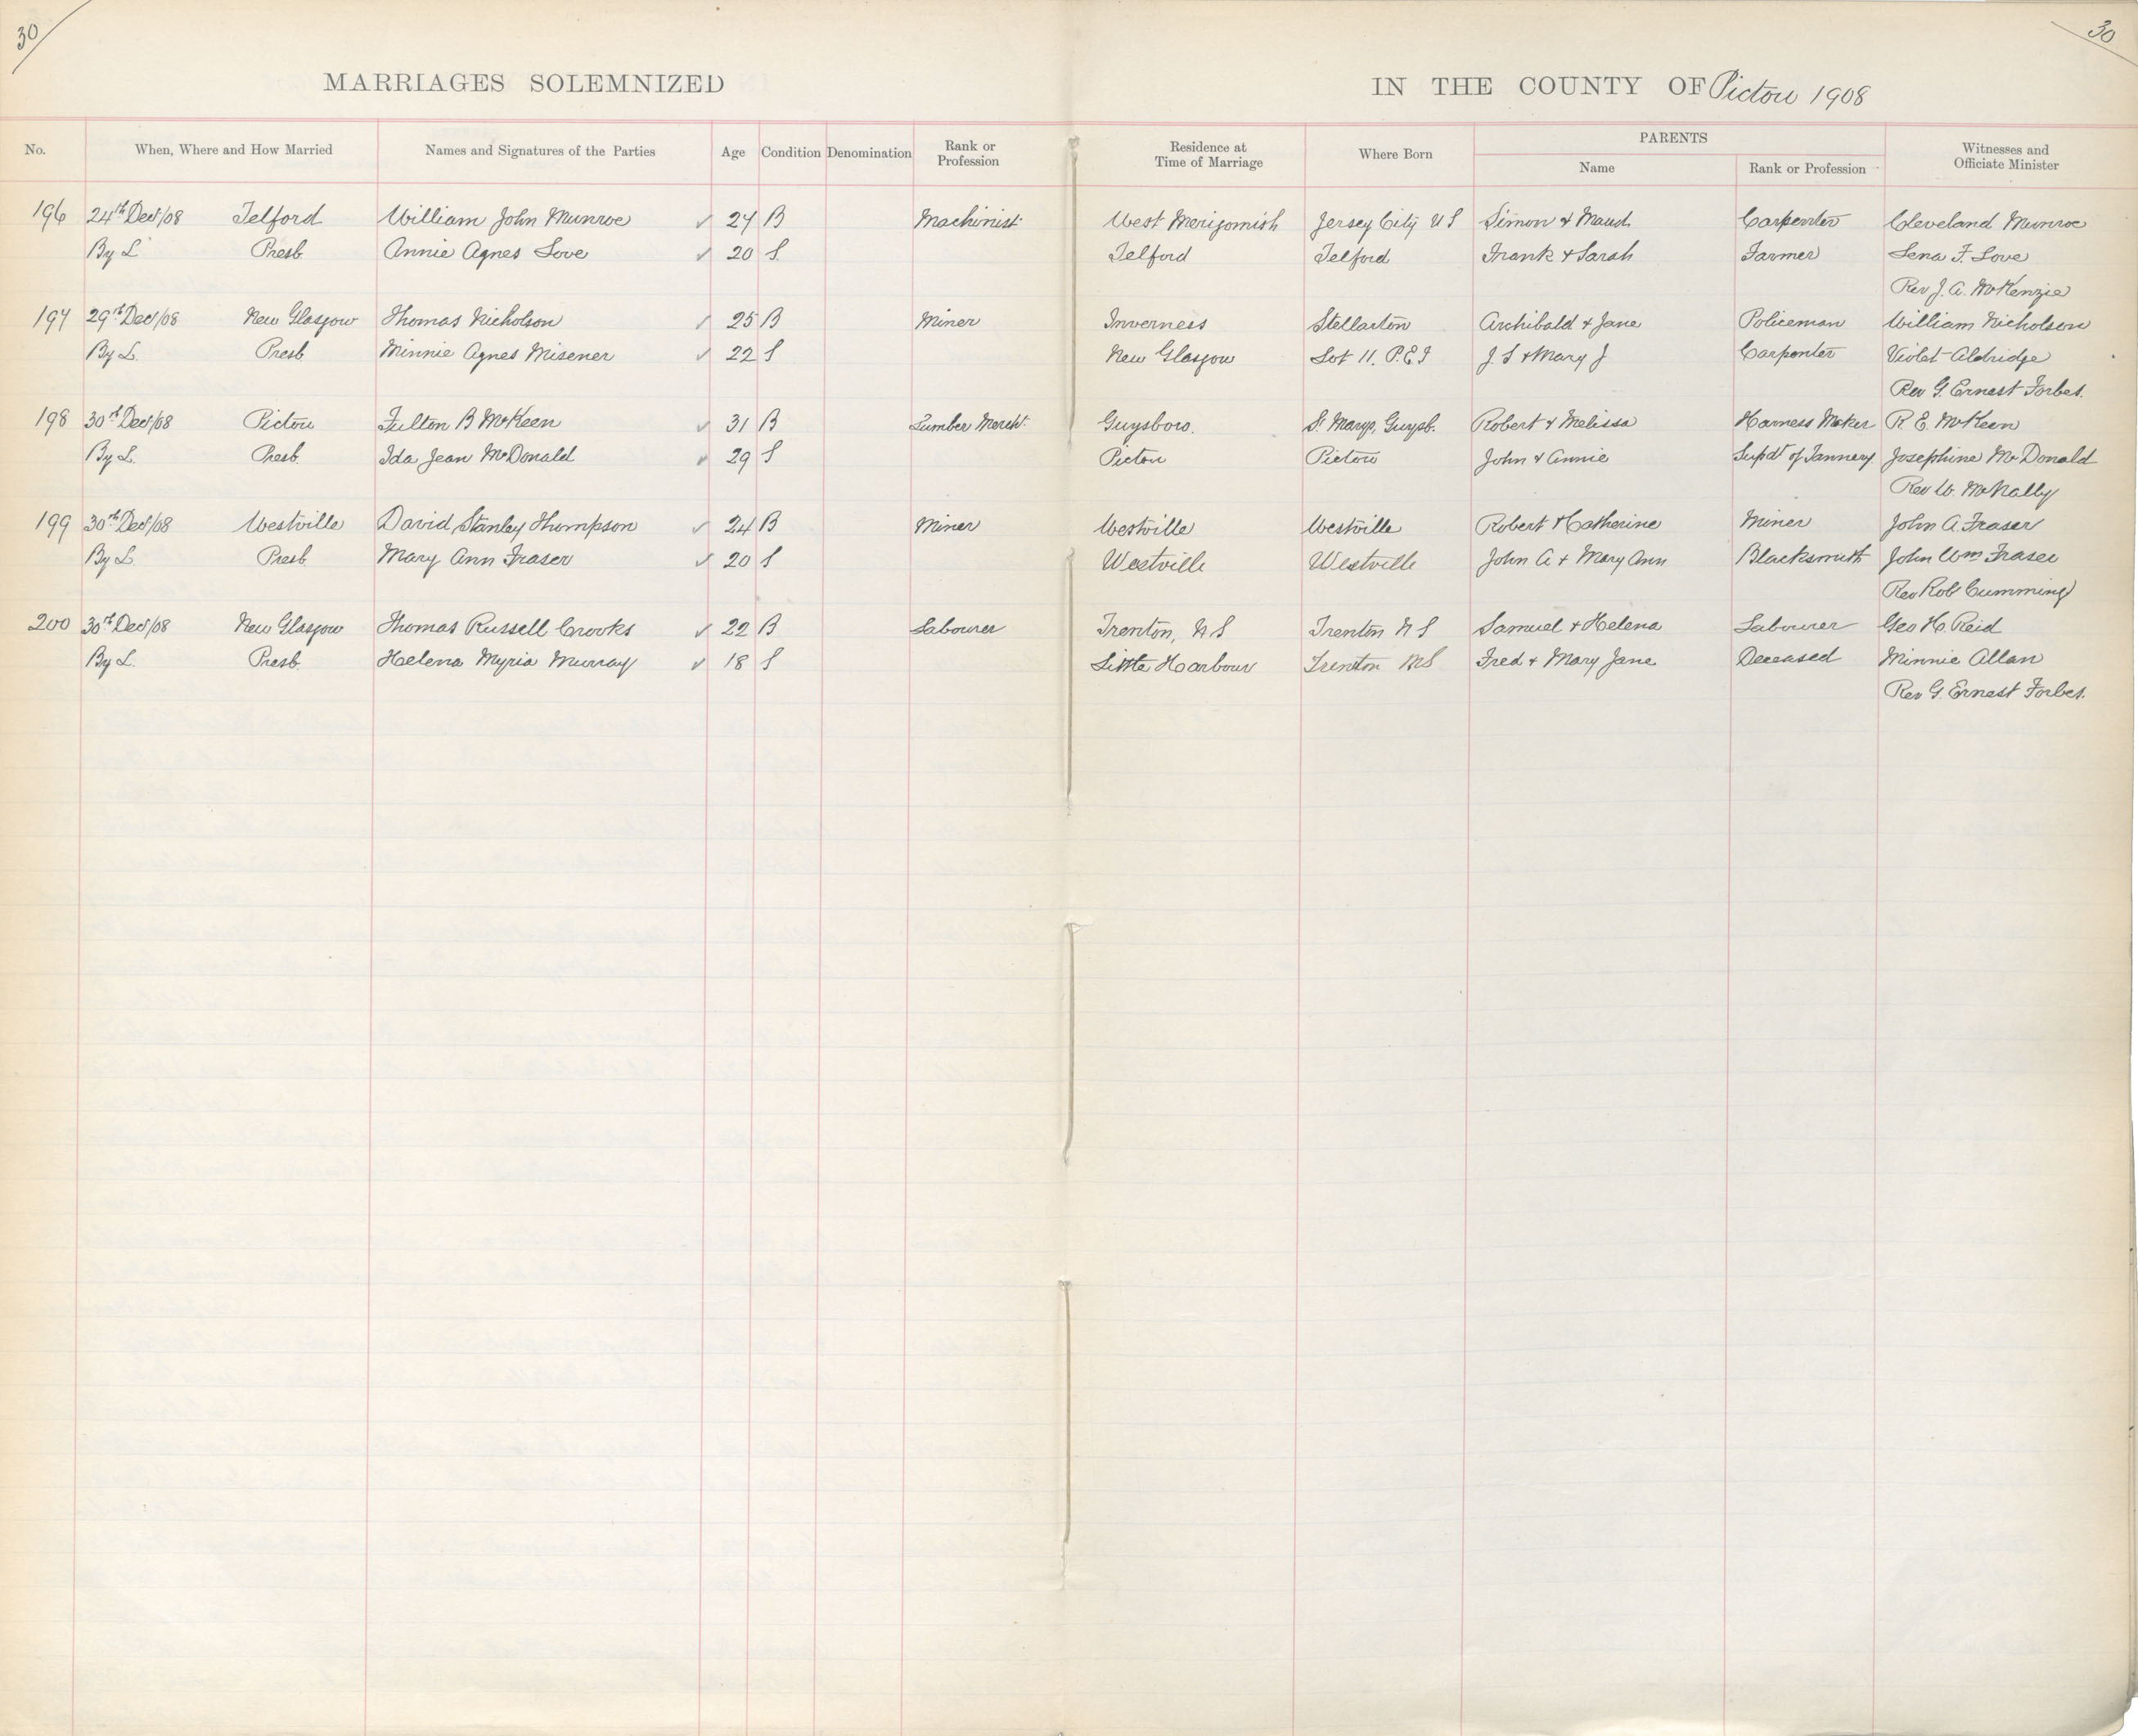 30 30
MARRIAGES SOLEMNIZED IN THE COUNTY OF Pictou 1908
No. When, Where and How Married Names and Signatures of the Parties Age Condition Denomination Rank or Profession Residence at Time of Marriage Where Born PARENTS Name Rank or Profession Witnesses and Officiate Minister
196 24th Dec/08 Telford William John Munroe ✓ 27 B Machinist West Merigomish Jersey City U S Simon & Maud Carpenter Cleveland Munroe
By L Presb Annie Agnes Love ✓ 20 S. Telford Telford Frank & Sarah Farmer Lena F. Love
Rev J. A. McKenzie
197 29th Dec/08 New Glasgow Thomas Nicholson ✓ 25 B Miner Inverness Stellarton Archibald & Jane Policeman William Nicholson
By L. Presb Minnie Agnes Misener ✓ 22 S New Glasgow Lot 11. P.E.I J. S & Mary J Carpenter Violet Aldridge
Rev G. Ernest Forbes.
198 30th Dec/08 Pictou Fulton B McKeen ✓ 31 B Lumber Mercht. Guysboro. St Marys, Guysb. Robert & Melissa Harness Maker R E. McKeen
By L. Presb. Ida Jean McDonald ✓ 29 S Pictou Pictou John & Annie Supdt of Tannery Josephine McDonald
Rev W. McNally
199 30th Dec/08 Westville David Stanley Thompson ✓ 24 B Miner Westville Westville Robert & Catherine Miner John A. Fraser
By L. Presb Mary Ann Fraser ✓ 20 S Westville Westville John A & Mary Ann Blacksmith John Wm Fraser
Rev Rob Cumming
200 30th Dec/08 New Glasgow Thomas Russell Crooks ✓ 22 B Labourer Trenton, N S Trenton N S Samuel & Helena Labourer Geo H. Reid
By L. Presb. Helena Myria Murray ✓ 18 S Little Harbour Trenton NS Fred & Mary Jane Deceased Minnie Allan
Rev G. Ernest Forbes.